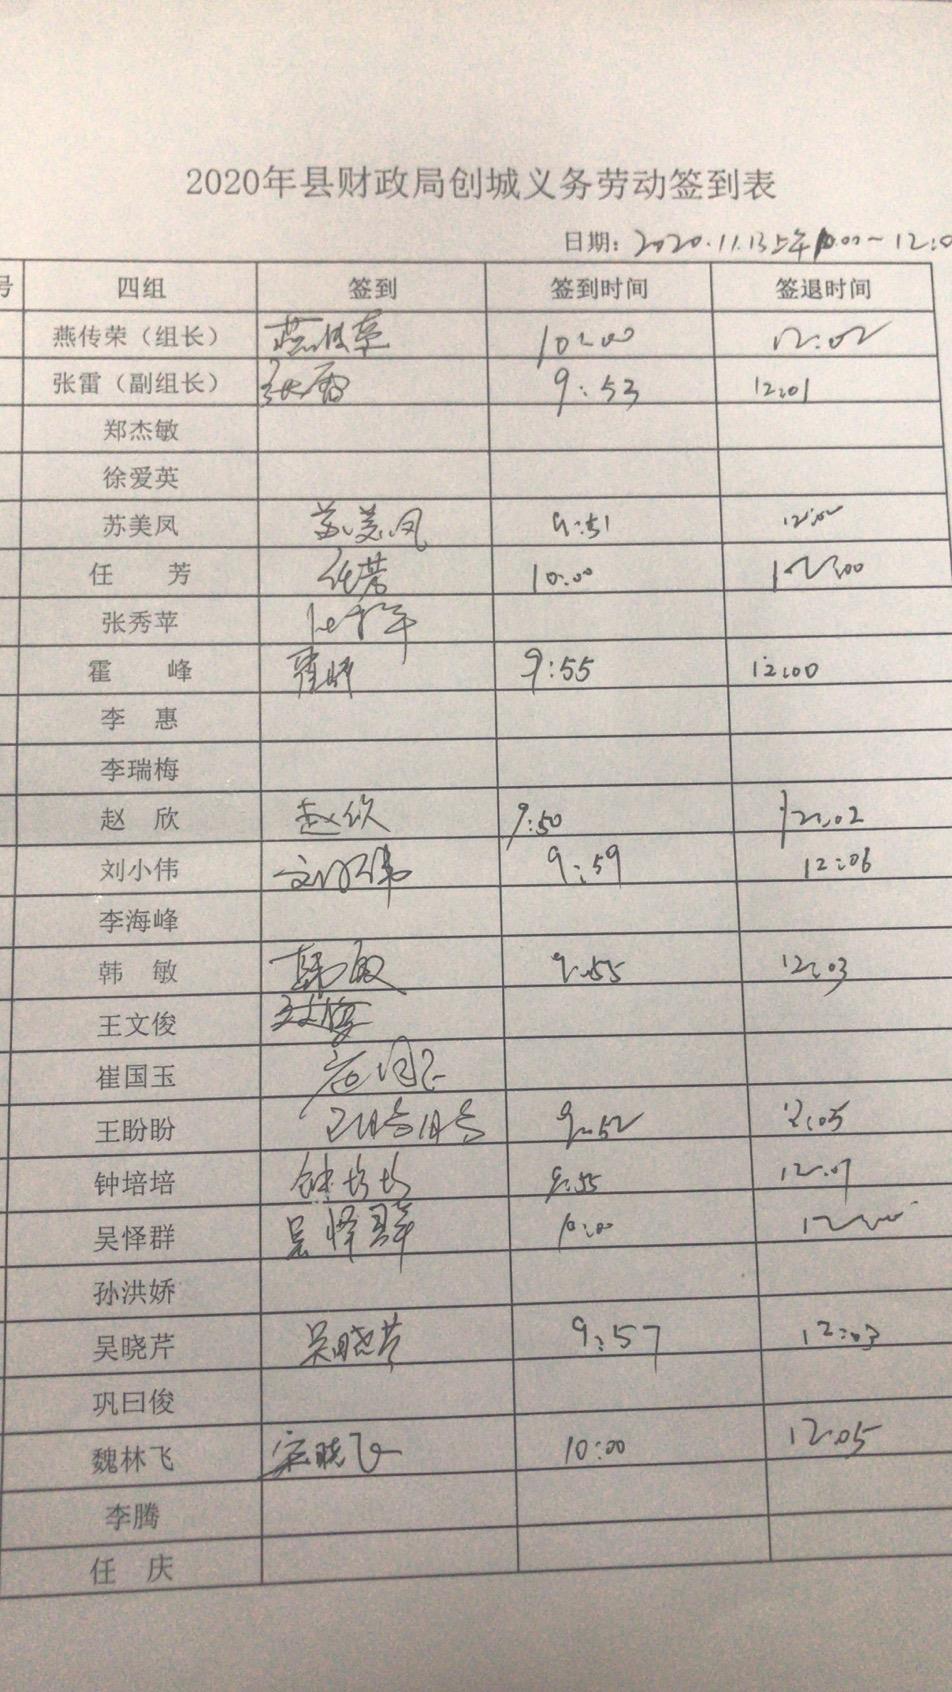 2020年县财政局创城义务劳动签到表
日期：2020.11.13上午10:00~12:0
号 四组 签到 签到时间 签退时间
燕传荣（组长） 燕传荣 10:00 12:02
张雷（副组长） 张雷 9:53 12:01
郑杰敏
徐爱英
苏美凤 苏美凤 9:51 12:02
任 芳 任芳 10:00 12:00
张秀苹
霍 峰 霍峰 9:55 12:00
李 惠
李瑞梅
赵 欣 赵欣 9:50 12:02
刘小伟 刘小伟 9:59 12:06
李海峰
韩 敏 韩敏 9:55 12:03
王文俊
崔国玉 崔国玉
王盼盼 王盼盼 9:52 12:05
钟培培 钟培培 9:55 12:01
吴怿群 吴怿群 10:00 12:00
孙洪娇
吴晓芹 吴晓芹 9:57 12:03
巩曰俊
魏林飞 10:00 12:05
李腾
任 庆